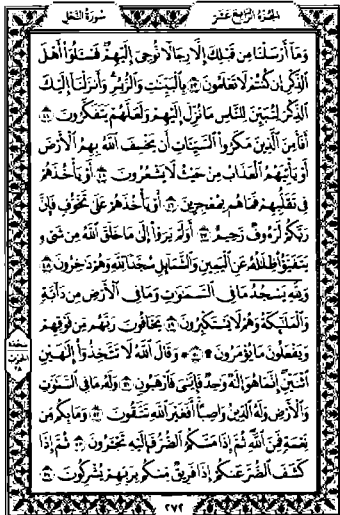 سورة النحل
الجزء الرابع عشر
وَمَآ أَرۡسَلۡنَا مِن قَبۡلِكَ إِلَّا رِجَالٗا نُّوحِيٓ إِلَيۡهِمۡۖ فَسۡـَٔلُوٓاْ أَهۡلَ
ٱلذِّكۡرِ إِن كُنتُمۡ لَا تَعۡلَمُونَ ٤٣ بِٱلۡبَيِّنَٰتِ وَٱلزُّبُرِۗ وَأَنزَلۡنَآ إِلَيۡكَ
ٱلذِّكۡرَ لِتُبَيِّنَ لِلنَّاسِ مَا نُزِّلَ إِلَيۡهِمۡ وَلَعَلَّهُمۡ يَتَفَكَّرُونَ ٤٤
أَفَأَمِنَ ٱلَّذِينَ مَكَرُواْ ٱلسَّيِّـَٔاتِ أَن يَخۡسِفَ ٱللَّهُ بِهِمُ ٱلۡأَرۡضَ
أَوۡ يَأۡتِيَهُمُ ٱلۡعَذَابُ مِنۡ حَيۡثُ لَا يَشۡعُرُونَ ٤٥ أَوۡ يَأۡخُذَهُمۡ
فِي تَقَلُّبِهِمۡ فَمَا هُم بِمُعۡجِزِينَ ٤٦ أَوۡ يَأۡخُذَهُمۡ عَلَىٰ تَخَوُّفٖ فَإِنَّ
رَبَّكُمۡ لَرَءُوفٞ رَّحِيمٌ ٤٧ أَوَلَمۡ يَرَوۡاْ إِلَىٰ مَا خَلَقَ ٱللَّهُ مِن شَيۡءٖ
يَتَفَيَّؤُاْ ظِلَٰلُهُۥ عَنِ ٱلۡيَمِينِ وَٱلشَّمَآئِلِ سُجَّدٗا لِّلَّهِ وَهُمۡ دَٰخِرُونَ ٤٨
وَلِلَّهِۤ يَسۡجُدُۤ مَا فِي ٱلسَّمَٰوَٰتِ وَمَا فِي ٱلۡأَرۡضِ مِن دَآبَّةٖ
وَٱلۡمَلَٰٓئِكَةُ وَهُمۡ لَا يَسۡتَكۡبِرُونَ ٤٩ يَخَافُونَ رَبَّهُم مِّن فَوۡقِهِمۡ
وَيَفۡعَلُونَ مَا يُؤۡمَرُونَ۩ ٥٠ ۞ وَقَالَ ٱللَّهُ لَا تَتَّخِذُوٓاْ إِلَٰهَيۡنِ
ٱثۡنَيۡنِۖ إِنَّمَا هُوَ إِلَٰهٞ وَٰحِدٞ فَإِيَّٰيَ فَٱرۡهَبُونِ ٥١ وَلَهُۥ مَا فِي ٱلسَّمَٰوَٰتِ
وَٱلۡأَرۡضِ وَلَهُ ٱلدِّينُ وَاصِبًاۚ أَفَغَيۡرَ ٱللَّهِ تَتَّقُونَ ٥٢ وَمَا بِكُم مِّن
نِّعۡمَةٖ فَمِنَ ٱللَّهِۖ ثُمَّ إِذَا مَسَّكُمُ ٱلضُّرُّ فَإِلَيۡهِ تَجۡـَٔرُونَ ٥٣ ثُمَّ إِذَا
كَشَفَ ٱلضُّرَّ عَنكُمۡ إِذَا فَرِيقٞ مِّنكُم بِرَبِّهِمۡ يُشۡرِكُونَ ٥٤
سجدة
الحزب
٢٨
٢٧٢